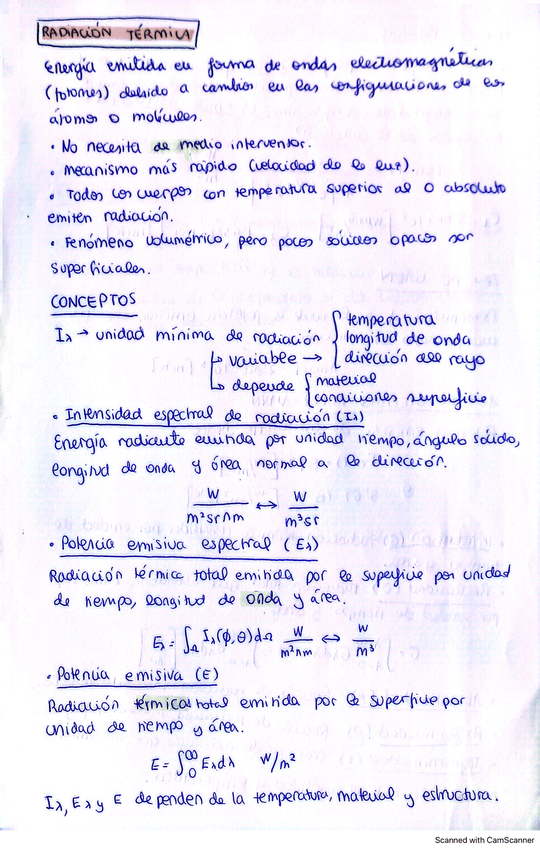 RADIACIÓN TÉRMICA
Energía emitida en forma de ondas electromagnéticas
(fotones) debido a cambios en las configuraciones de los
átomos o moléculas.
· No necesita de medio interventor.
· Mecanismo más rápido (velocidad de la luz).
· Todos los cuerpos con temperatura superior al 0 absoluto
emiten radiación.
· Fenómeno volumétrico, pero pocos sólidos opacos son
superficiales.
CONCEPTOS
Iλ → unidad mínima de radiación { temperatura
longitud de onda
↳ variable → dirección del rayo
↳ depende { material
condiciones superficie
· Intensidad espectral de radiación (Iλ)
Energía radiante emitida por unidad tiempo, ángulo sólido,
longitud de onda y área normal a la dirección.
W/m²srnm ↔ W/m³sr
· Potencia emisiva espectral (Eλ)
Radiación térmica total emitida por la superficie por unidad
de tiempo, longitud de onda y área.
Eλ = ∫Ω Iλ(φ,θ)dΩ W/m²nm ↔ W/m³
· Potencia emisiva (E)
Radiación térmica total emitida por la superficie por
unidad de tiempo y área.
E = ∫₀^∞ Eλdλ W/m²
Iλ, Eλ y E dependen de la temperatura, material y estructura.
Scanned with CamScanner